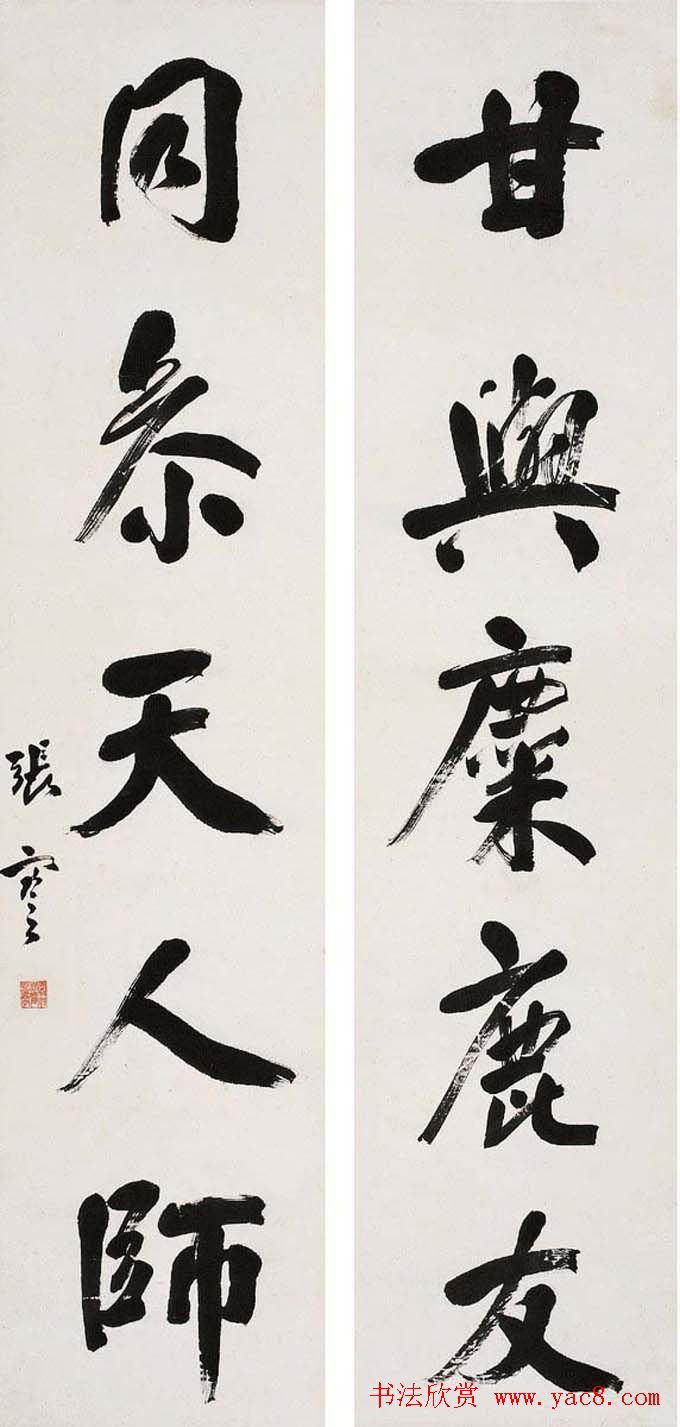 甘與麋鹿友
同參天人師
張謇
书法欣赏 www.yac8.com